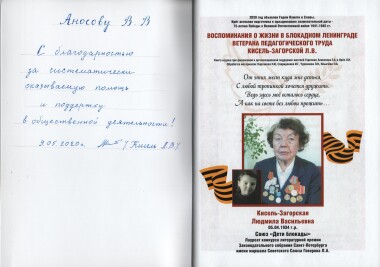 Аносову В В
С благодарностью
за систематически
оказываемую помощь
и поддержку
в общественной деятельности!
9.05.2020г. / Кисель Л.В./
2020 год объявлен Годом Памяти и Славы.
75-летию Победы в Великой Отечественной войне 1941-1945 гг.
ВОСПОМИНАНИЯ О ЖИЗНИ В БЛОКАДНОМ ЛЕНИНГРАДЕ
ВЕТЕРАНА ПЕДАГОГИЧЕСКОГО ТРУДА
КИСЕЛЬ-ЗАГОРСКОЙ Л.В.
От этих мест куда мне деться,
С любой тропинкой хочется дружить.
Ведь здесь моё осталось сердце,
А как на свете без любви прожить...
Кисель-Загорская
Людмила Васильевна
05.04.1934 г.р.
Союз «Дети блокады»
Лауреат конкурса литературной премии
Законодательного собрания Санкт-Петербурга
имени маршала Советского Союза Говорова Л.А.